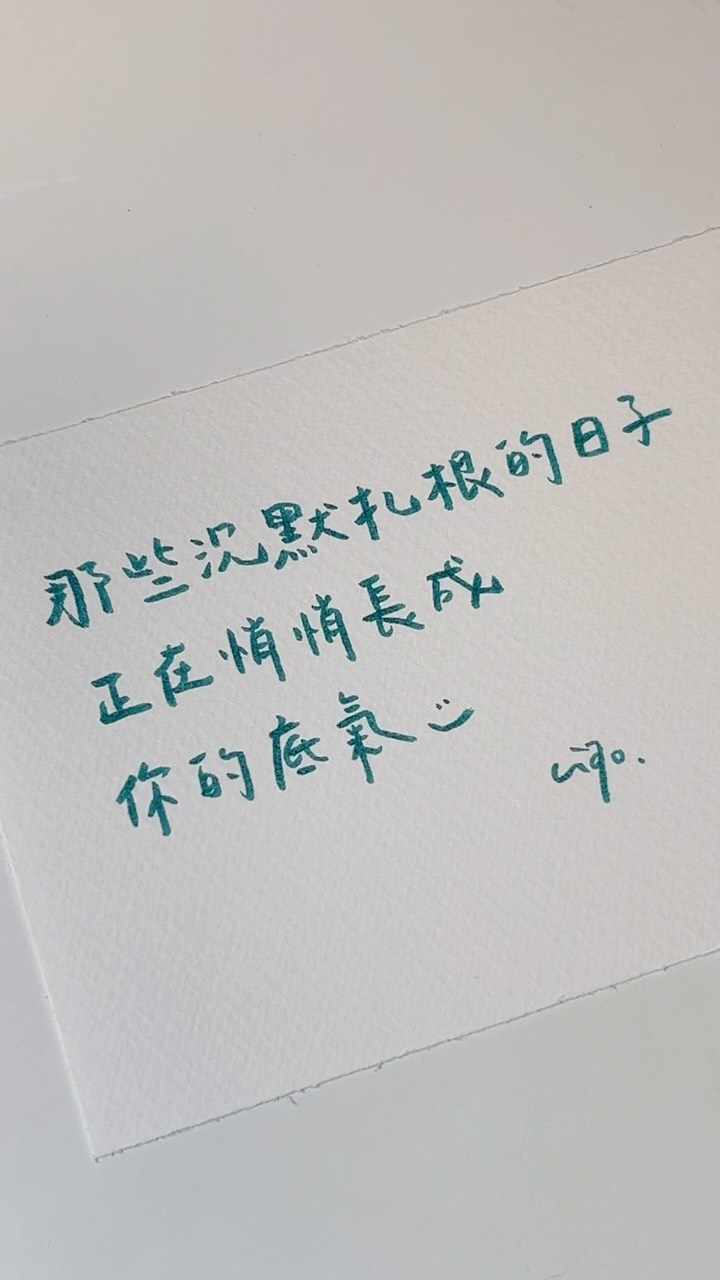 那些沉默扎根的日子
正在悄悄長成
你的底氣